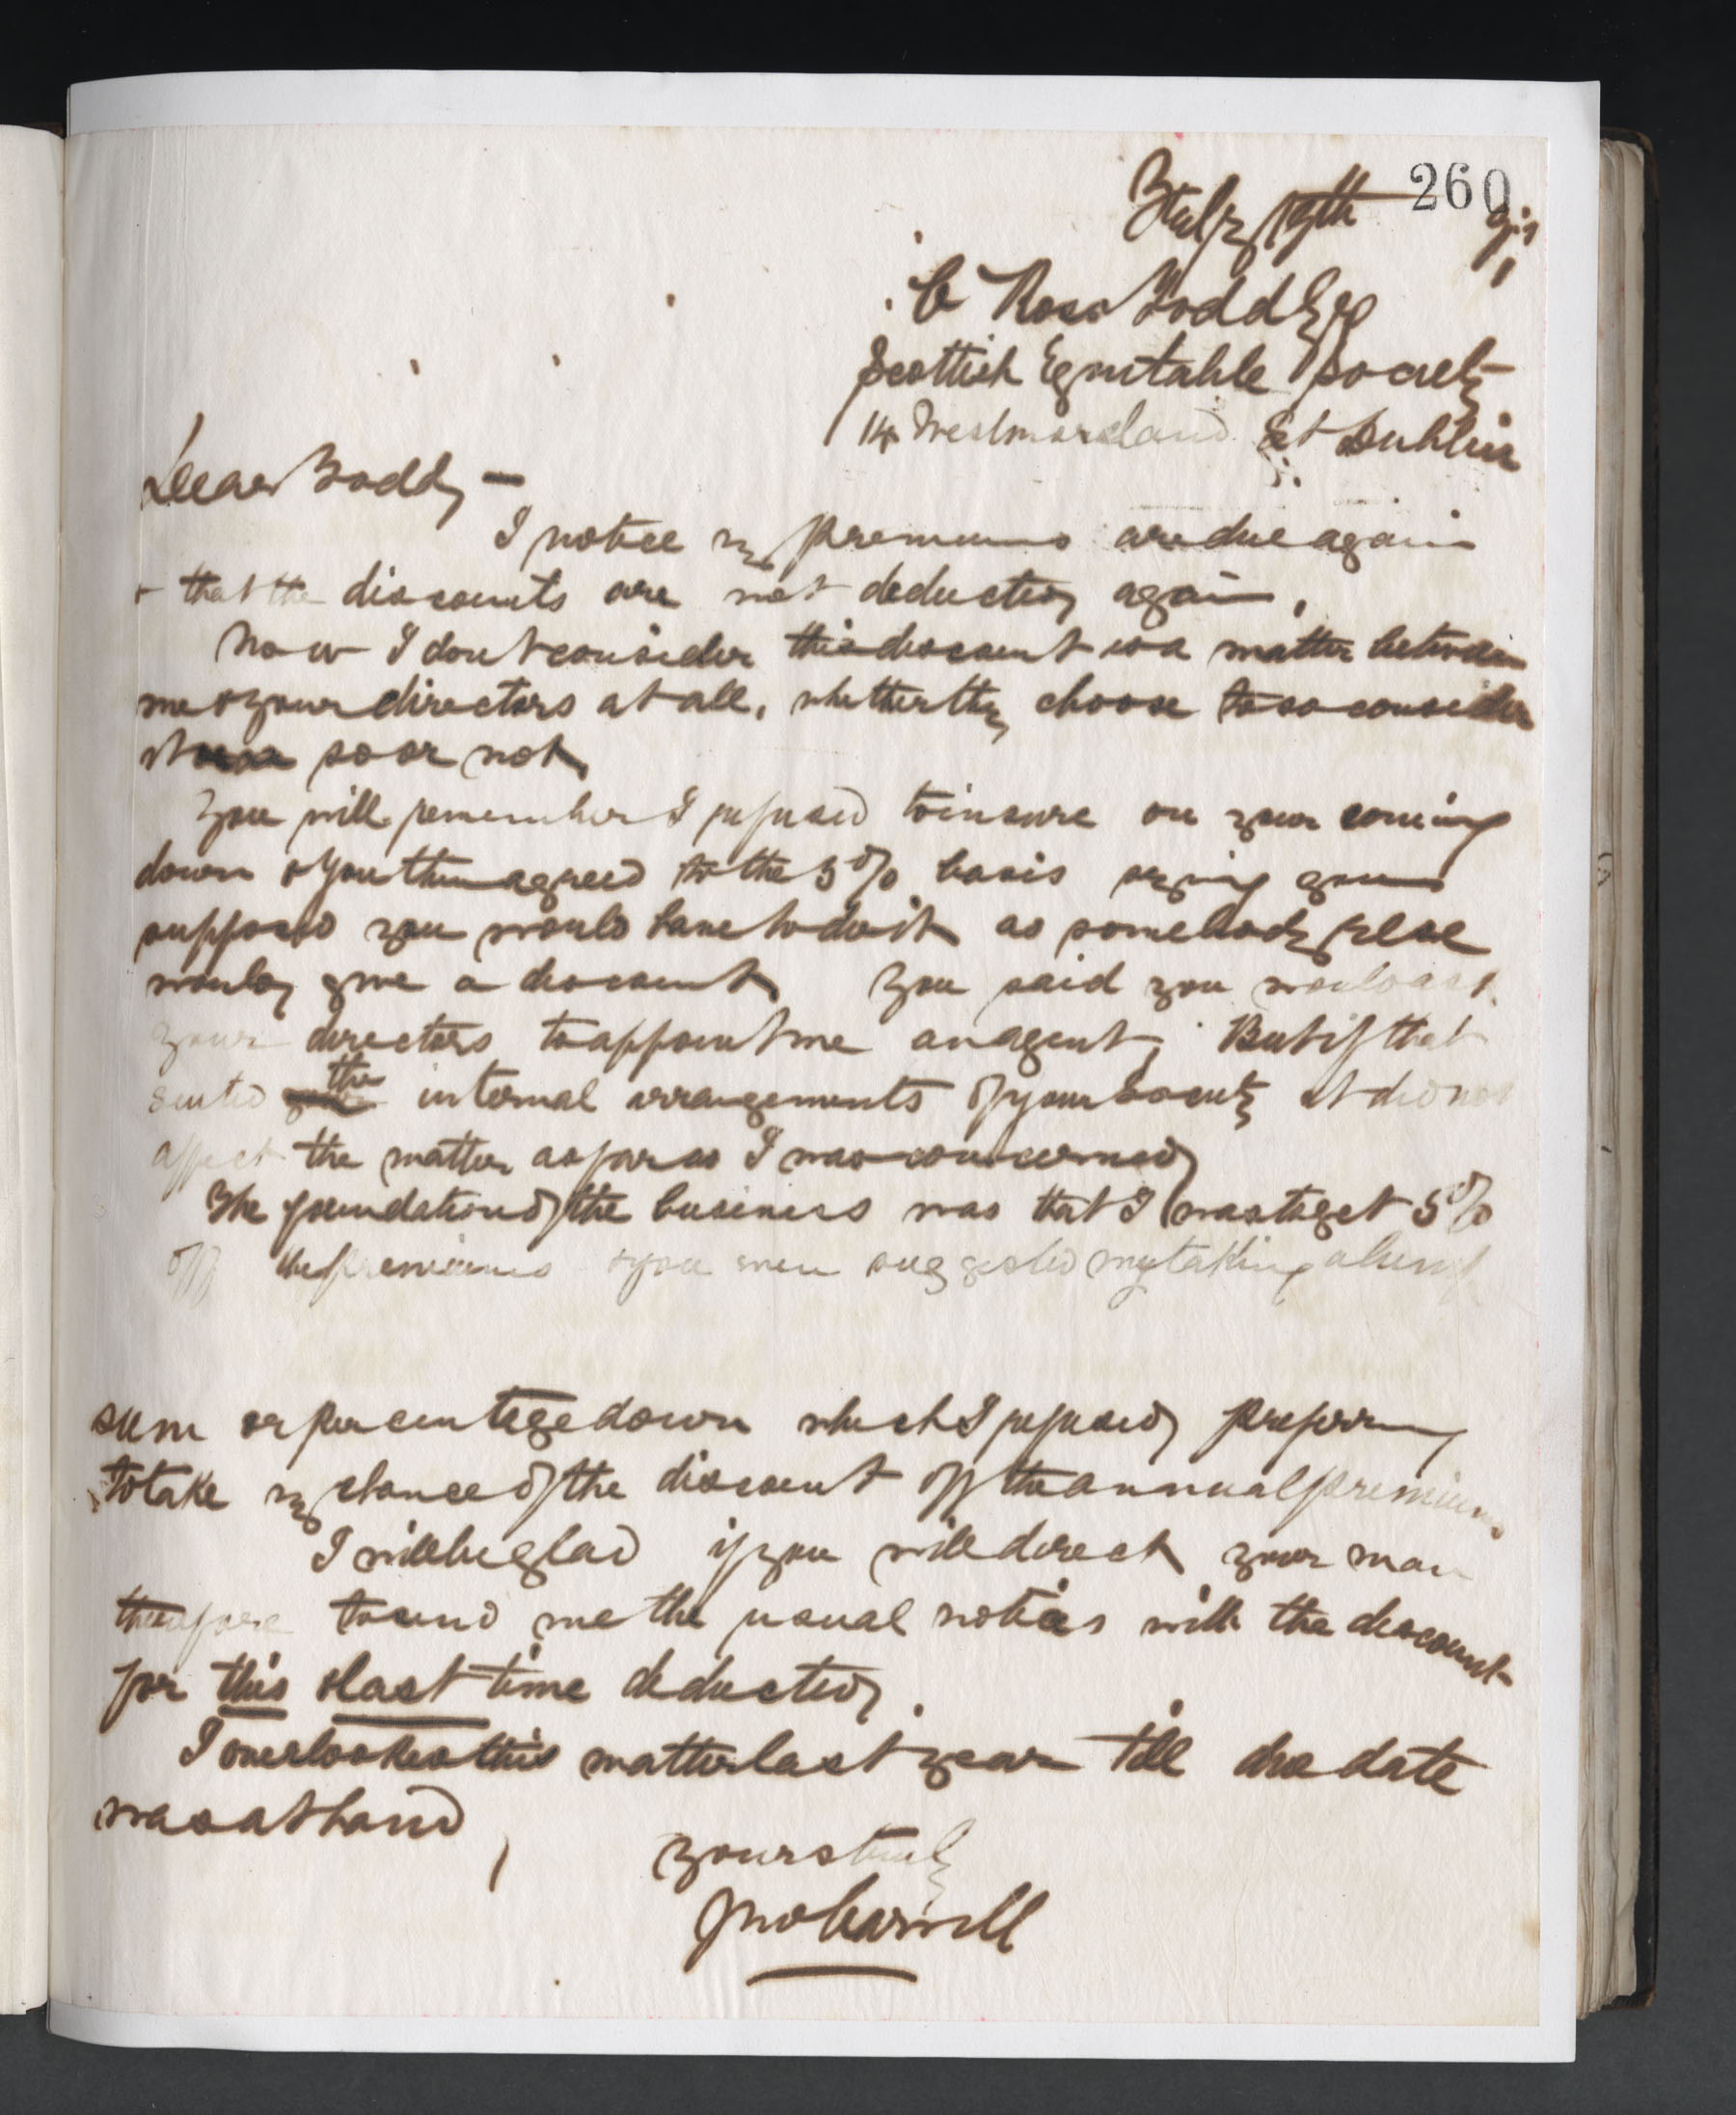 260
July 19th 91
C Ross Todd Esq
Scottish Equitable Society
14 Westmoreland St Dublin
Dear Todd, —
I notice my premiums are due again
& that the discounts are not deducted again.
Now I dont consider this discount is a matter between
me & your directors at all, whether they choose to so consider
it so or not.
You will remember I refused to insure on your coming
down & you then agreed to the 5% basis saying you
supposed you would have to do it as somebody else
would give a discount. You said you would ask
your directors to appoint me an agent. But if that
suited the internal arrangements of your Society it did not
affect the matter as far as I was concerned
The foundation of the business was that I was to get 5%
off the premiums & you even suggested my taking a lump
sum or percentage down which I refused preferring
to take my chance of the discount off the annual premiums
I will be glad if you will direct your man
therefore to send me the usual notices with the discount
for this & last time deducted.
I overlooked this matter last year till the date
was at hand,
Yours truly
Jno Carroll